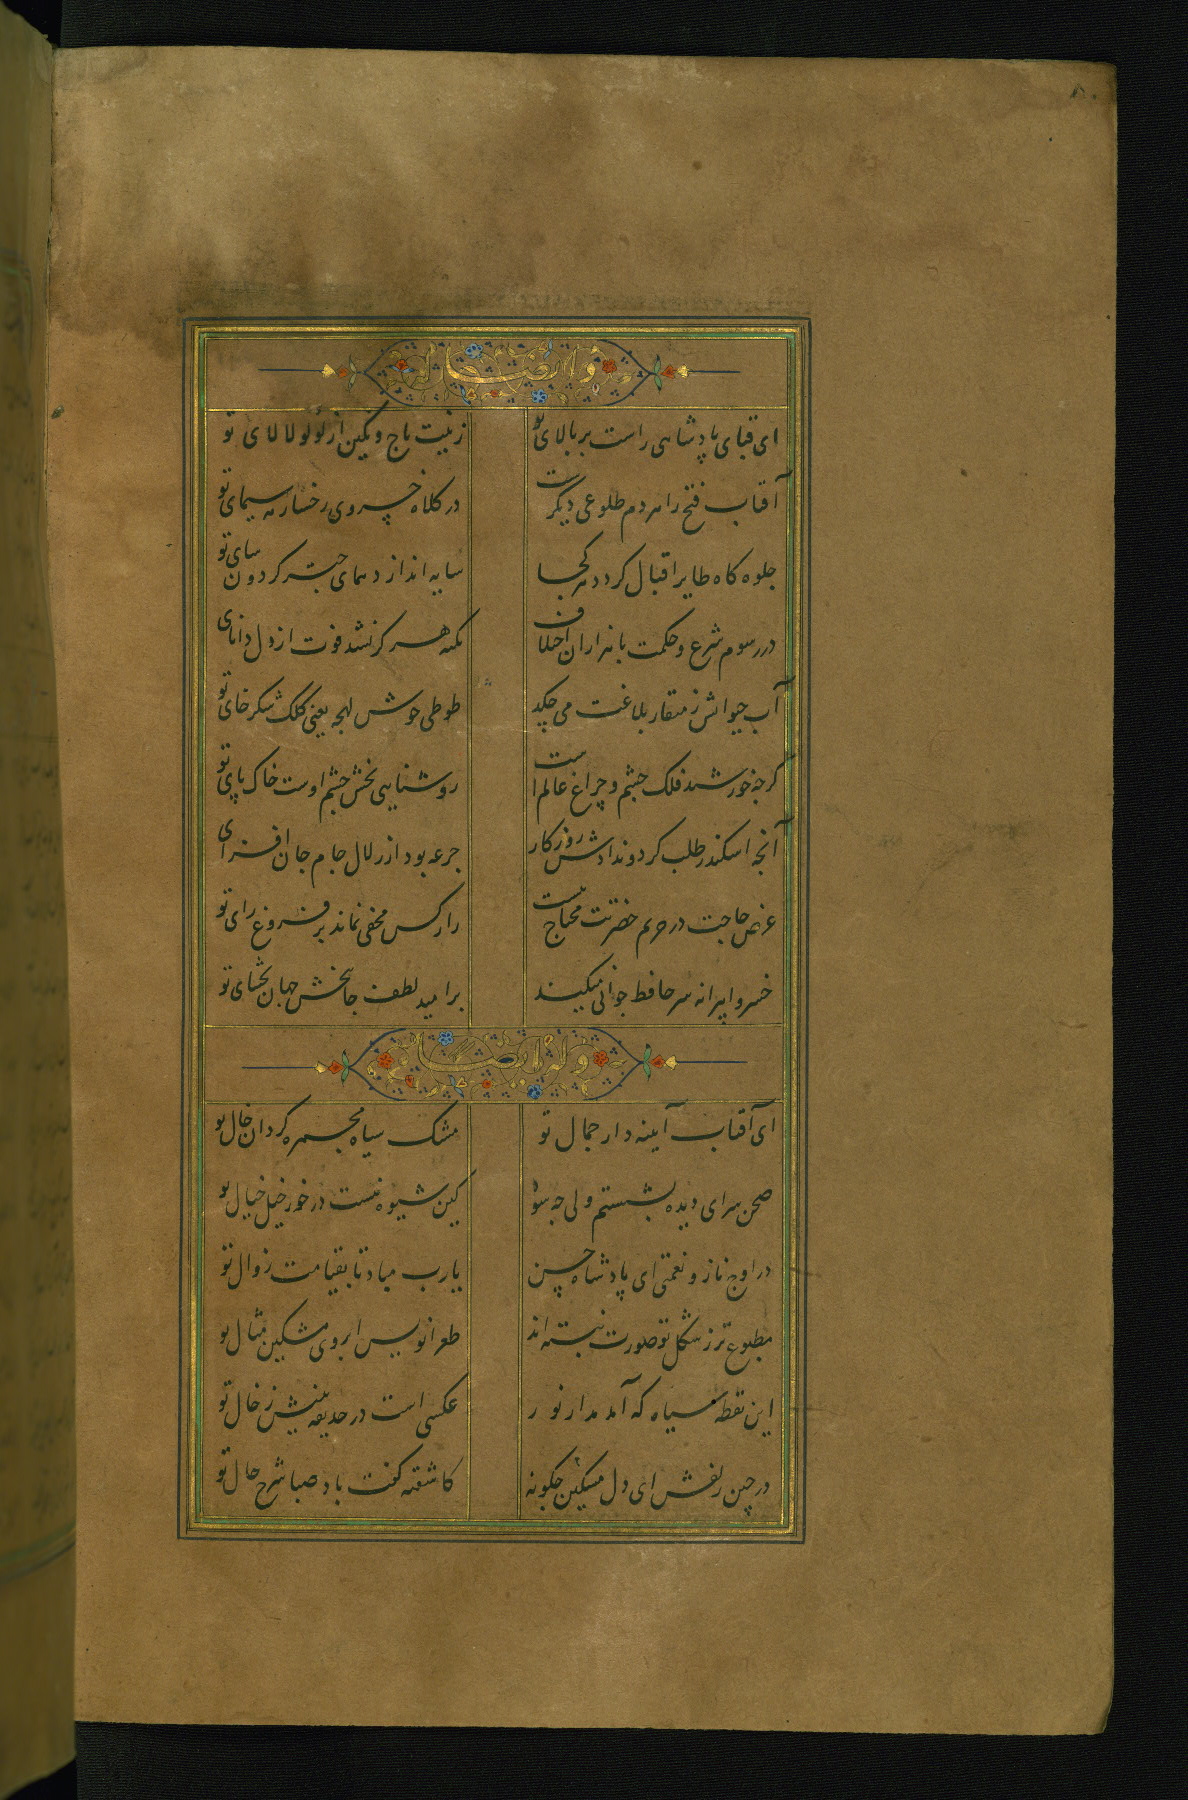 وایضا له
ای قبای پادشاهی راست بر بالای تو زینت تاج و نگین از لؤلؤ لالای تو
آفتاب فتح را هر دم طلوعی دیگرست در کلاه خسروی رخسار مه سیمای تو
جلوه کاه طایر اقبال کردد هر کجا سایه اندازد همای چتر کردون سای تو
در رسوم شرع و حکمت با هزاران اختلاف نکته هرکز نشد فوت از دل دانای تو
آب حیوانش ز منقار بلاغت می چکد طوطی خوش لهجه یعنی کلک شکر خای تو
کرچه خورشید فلک چشم و چراغ عالم است روشنایی بخش چشم اوست خاک پای تو
آنچه اسکندر طلب کرد و ندادش روزکار جرعه بود از زلال جام جان افزای تو
عرض حاجت در حریم حضرتت محتاج نیست راز کس مخفی نماند بر فروغ رای تو
خسروا پیرانه سر حافظ جوانی میکند بر امید لطف جان بخش جهان بخشای تو
وله ایضا
ای آفتاب آینه دار جمال تو مشک سیاه مجمره کردان خال تو
صحن سرای دیده بشستم ولی چه سود کین شیوه نیست در خور خیل خیال تو
در اوج ناز و نعمتی ای پادشاه حسن یارب مباد تا بقیامت زوال تو
مطبوع تر ز شکل تو صورت نبسته اند طغرا نویس ابروی مشکین مثال تو
این نقطه سیاه که آمد مدار نور عکسی است در حدیقه بینش ز خال تو
در چین زلفش ای دل مسکین چکونه کاشفته کفت باد صبا شرح حال تو